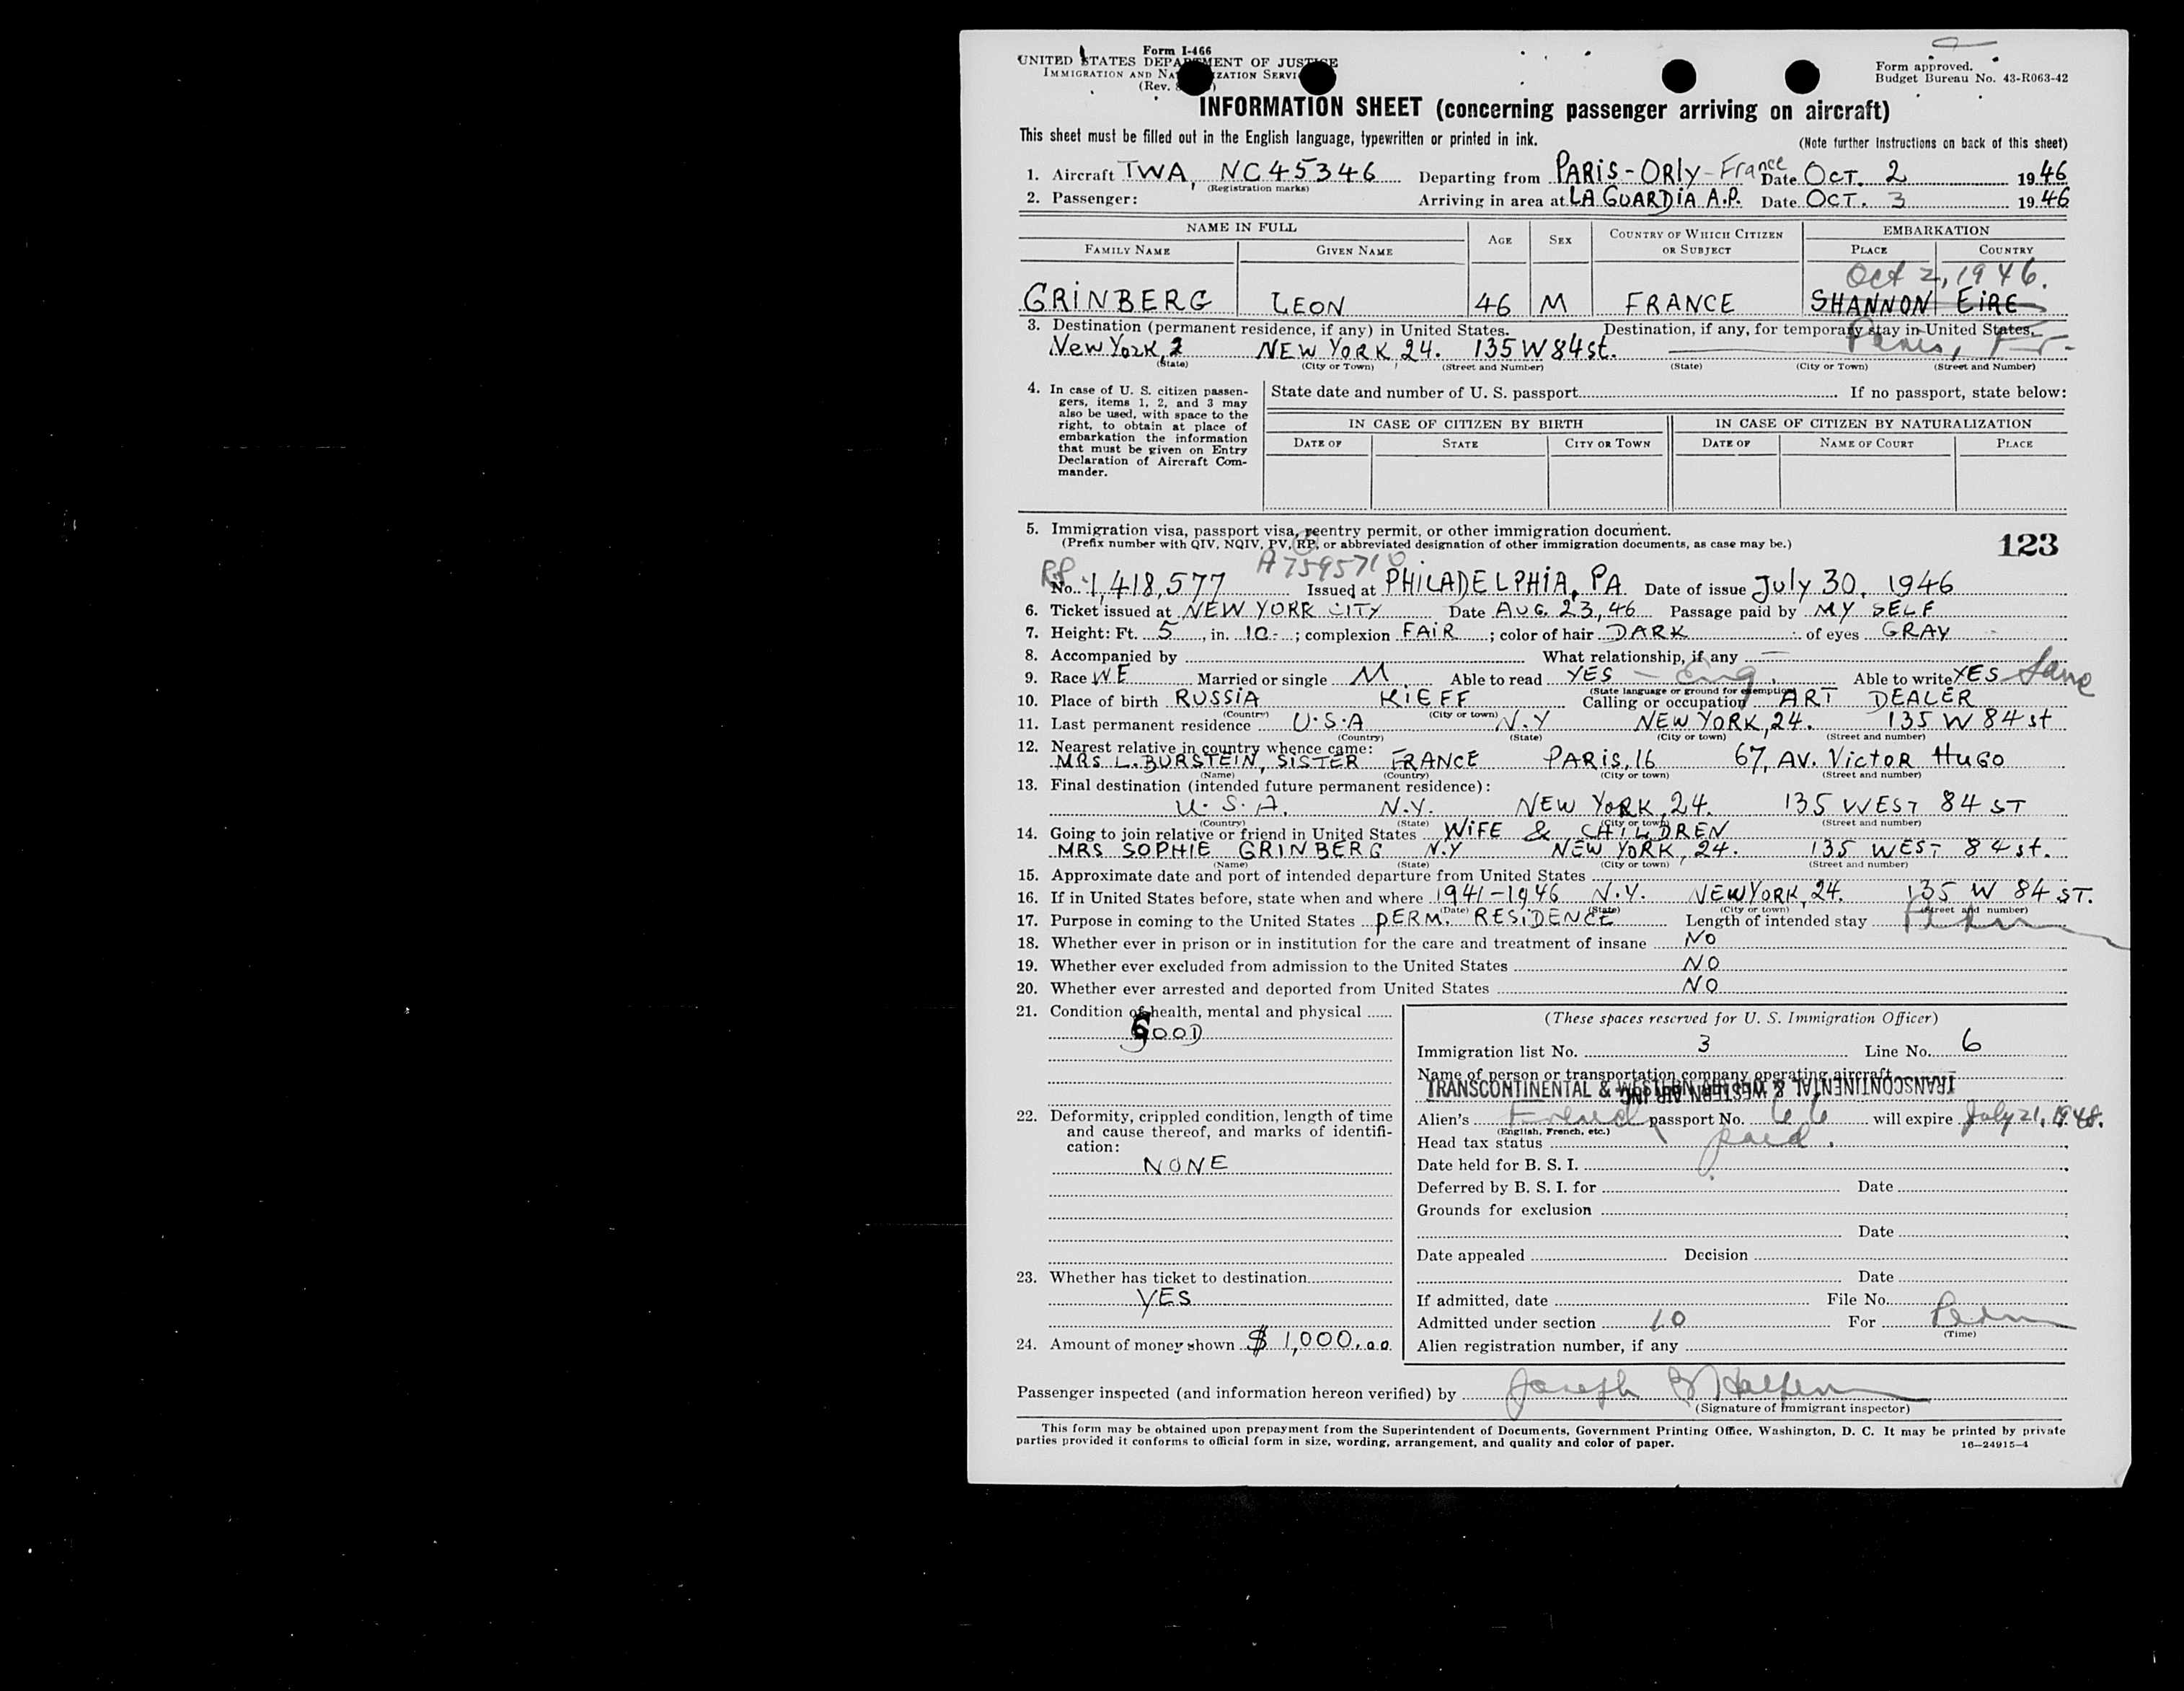 Form I-466
UNITED STATES DEPARTMENT OF JUSTICE
IMMIGRATION AND NA IZATION SERVI
(Rev.
Form approved.
Budget Bureau No. 43-R063-42
INFORMATION SHEET (concerning passenger arriving on aircraft)
This sheet must be filled out in the English language, typewritten or printed in ink. (Note further instructions on back of this sheet)
1. Aircraft TWA, NC45346 Departing from PARIS-ORLY-France Date OCT. 2 1946
(Registration marks)
2. Passenger: Arriving in area at LA GUARDIA A.P. Date OCT. 3 1946
NAME IN FULL AGE SEX COUNTRY OF WHICH CITIZEN OR SUBJECT EMBARKATION
FAMILY NAME GIVEN NAME PLACE COUNTRY
Oct 2, 1946.
GRINBERG LEON 46 M FRANCE SHANNON EIRE
3. Destination (permanent residence, if any) in United States. Destination, if any, for temporary stay in United States.
New York, 2 NEW YORK, 24. 135 W 84 st. Paris, Fr-
(State) (City or Town) (Street and Number) (State) (City or Town) (Street and Number)
4. In case of U. S. citizen passen-
gers, items 1, 2, and 3 may
also be used, with space to the
right, to obtain at place of
embarkation the information
that must be given on Entry
Declaration of Aircraft Com-
mander.
State date and number of U. S. passport If no passport, state below:
IN CASE OF CITIZEN BY BIRTH IN CASE OF CITIZEN BY NATURALIZATION
DATE OF STATE CITY OR TOWN DATE OF NAME OF COURT PLACE
5. Immigration visa, passport visa, reentry permit, or other immigration document.
(Prefix number with QIV, NQIV, PV, RP, or abbreviated designation of other immigration documents, as case may be.)
123
A7595710
RP No. 1,418,577 Issued at PHILADELPHIA, PA Date of issue July 30, 1946
6. Ticket issued at NEW YORK CITY Date AUG. 23, 46 Passage paid by MY SELF
7. Height: Ft. 5, in. 10- ; complexion FAIR ; color of hair DARK of eyes GRAY
8. Accompanied by What relationship, if any —
9. Race WE Married or single M Able to read YES - Eng. Able to write YES Same
(State language or ground for exemption)
10. Place of birth RUSSIA KIEFF Calling or occupation ART DEALER
(Country) (City or town)
11. Last permanent residence U.S.A N.Y NEW YORK, 24. 135 W 84 st
(Country) (State) (City or town) (Street and number)
12. Nearest relative in country whence came:
MRS L. BURSTEIN, SISTER FRANCE PARIS, 16 67, AV. VICTOR HUGO
(Name) (Country) (City or town) (Street and number)
13. Final destination (intended future permanent residence):
U.S.A. N.Y. NEW YORK, 24. 135 WEST 84 ST
(Country) (State) (City or town) (Street and number)
14. Going to join relative or friend in United States WIFE & CHILDREN
MRS SOPHIE GRINBERG N.Y NEW YORK, 24. 135 WEST 84 st.
(Name) (State) (City or town) (Street and number)
15. Approximate date and port of intended departure from United States
16. If in United States before, state when and where 1941-1946 N.Y. NEW YORK, 24. 135 W 84 ST.
(Date) (State) (City or town) (Street and number)
17. Purpose in coming to the United States PERM. RESIDENCE Length of intended stay Perm
18. Whether ever in prison or in institution for the care and treatment of insane NO
19. Whether ever excluded from admission to the United States NO
20. Whether ever arrested and deported from United States NO
21. Condition of health, mental and physical
GOOD
22. Deformity, crippled condition, length of time
and cause thereof, and marks of identifi-
cation:
NONE
23. Whether has ticket to destination
YES
24. Amount of money shown $ 1,000.00
(These spaces reserved for U. S. Immigration Officer)
Immigration list No. 3 Line No. 6
Name of person or transportation company operating aircraft
TRANSCONTINENTAL & WESTERN AIR INC
TRANSCONTINENTAL & WESTERN AIR INC
Alien's French passport No. 66 will expire July 21, 1948.
(English, French, etc.)
Head tax status paid.
Date held for B. S. I.
Deferred by B. S. I. for Date
Grounds for exclusion
Date
Date appealed Decision
Date
If admitted, date File No.
Admitted under section 10 For Perm
(Time)
Alien registration number, if any
Passenger inspected (and information hereon verified) by Joseph Halpern
(Signature of Immigrant inspector)
This form may be obtained upon prepayment from the Superintendent of Documents, Government Printing Office, Washington, D. C. It may be printed by private
parties provided it conforms to official form in size, wording, arrangement, and quality and color of paper. 16-24915-4